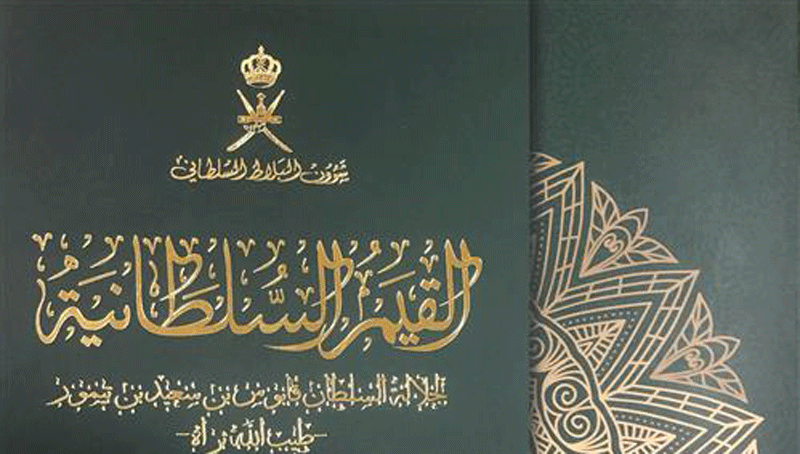 شؤون البلاط السلطاني
القيم السُّلطانية
جلالة السلطان قابوس بن سعيد بن تيمور
-طيب الله ثراه-